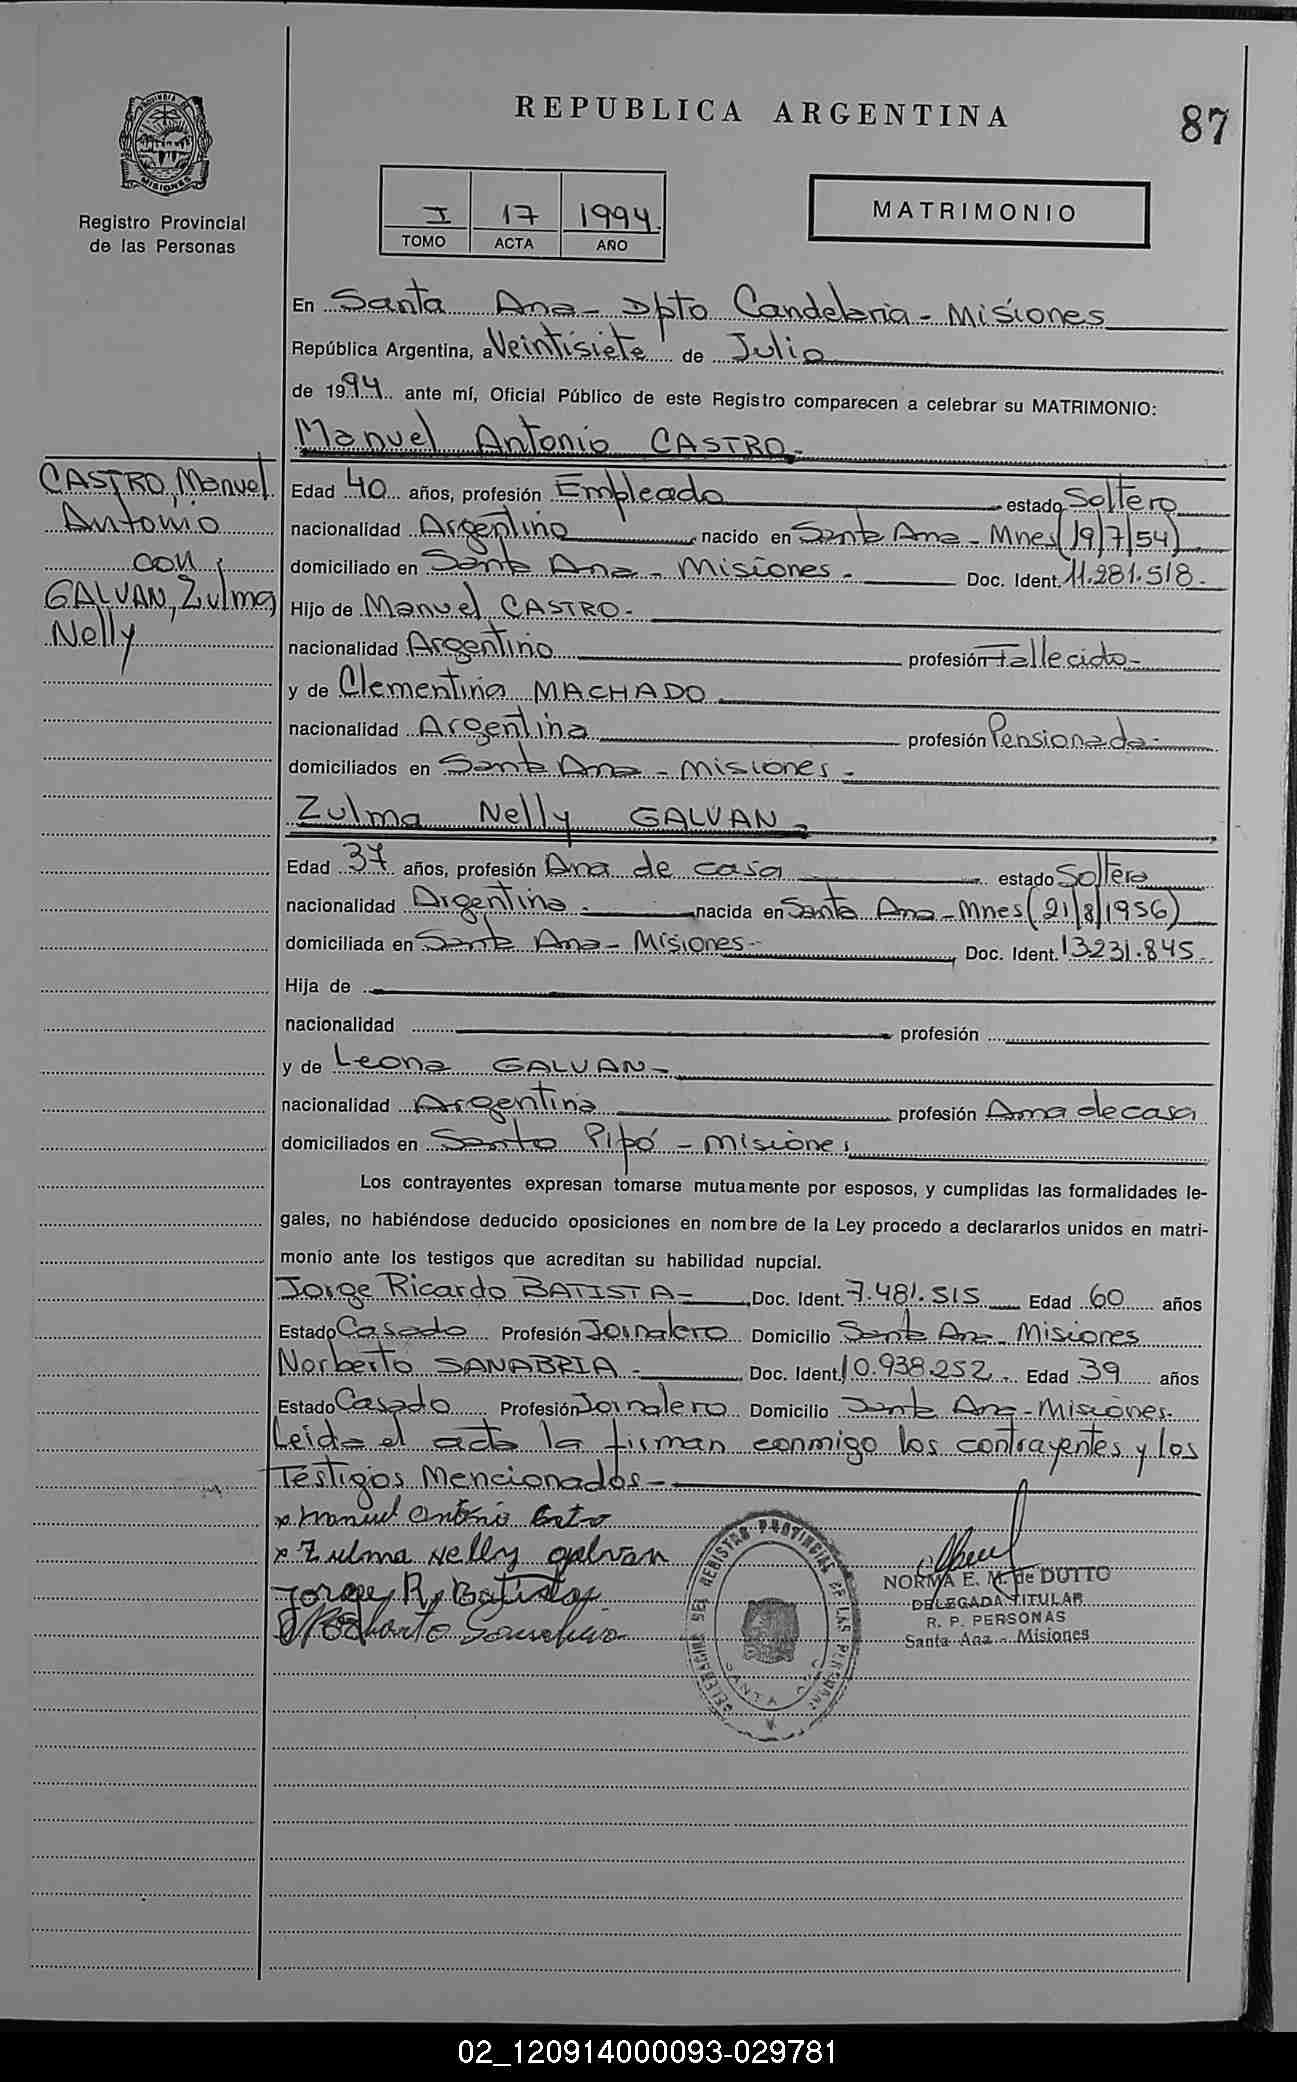 REPUBLICA ARGENTINA
87
PROVINCIA DE
MISIONES
Registro Provincial
de las Personas
I 17 1994.
TOMO ACTA AÑO
MATRIMONIO
En Santa Ana - Dpto Candelaria - Misiones
República Argentina, a Veintisiete de Julio
de 1994 ante mí, Oficial Público de este Registro comparecen a celebrar su MATRIMONIO:
Manuel Antonio CASTRO.-
CASTRO, Manuel
Antonio
con
GALVAN, Zulma
Nelly
Edad 40 años, profesión Empleado estado Soltero
nacionalidad Argentino nacido en Santa Ana - Mnes (19/7/54)
domiciliado en Santa Ana - Misiones - Doc. Ident. 11.281.518.-
Hijo de Manuel CASTRO.-
nacionalidad Argentino profesión Fallecido-
y de Clementina MACHADO
nacionalidad Argentina profesión Pensionada-
domiciliados en Santa Ana - Misiones -
Zulma Nelly GALVAN -
Edad 37 años, profesión Ama de casa estado Soltera
nacionalidad Argentina - nacida en Santa Ana - Mnes (21/8/1956)
domiciliada en Santa Ana - Misiones - Doc. Ident. 13231.845-
Hija de
nacionalidad profesión
y de Leona GALVAN -
nacionalidad Argentina profesión Ama de casa
domiciliados en Santo Pipó - Misiones
Los contrayentes expresan tomarse mutuamente por esposos, y cumplidas las formalidades le-
gales, no habiéndose deducido oposiciones en nombre de la Ley procedo a declararlos unidos en matri-
monio ante los testigos que acreditan su habilidad nupcial.
Jorge Ricardo BATISTA - Doc. Ident. 7.481.515 Edad 60 años
Estado Casado Profesión Jornalero Domicilio Santa Ana - Misiones
Norberto SANABRIA - Doc. Ident. 10.938.252 - Edad 39 años
Estado Casado Profesión Jornalero Domicilio Santa Ana - Misiones.
Leida el acta la firman conmigo los contrayentes y los
Testigos Mencionados -
x Manuel Antonio Castro
x Zulma Nelly galvan
Jorge R Batista
Norberto Sanabria
DELEGACION DEL REGISTRO PROVINCIAL DE LAS PERSONAS
SANTA ANA
NORMA E. M. de DUTTO
DELEGADA TITULAR
R. P. PERSONAS
Santa Ana - Misiones
02_120914000093-029781